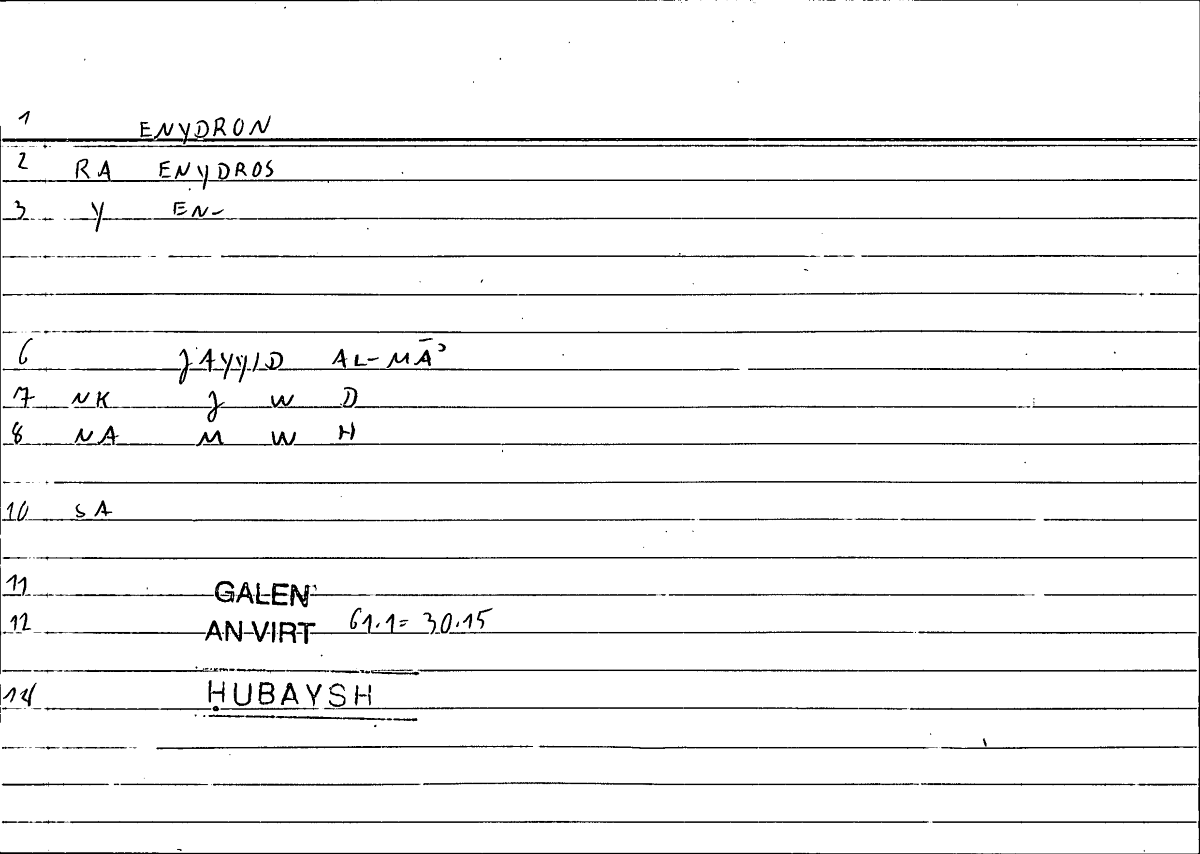 1 ENYDRON
2 RA ENYDROS
3 Y EN-
6 JAYYID AL-MĀʾ
7 NK J W D
8 NA M W H
10 SA
11 GALEN
12 AN VIRT 61.1= 30.15
14 ḤUBAYSH